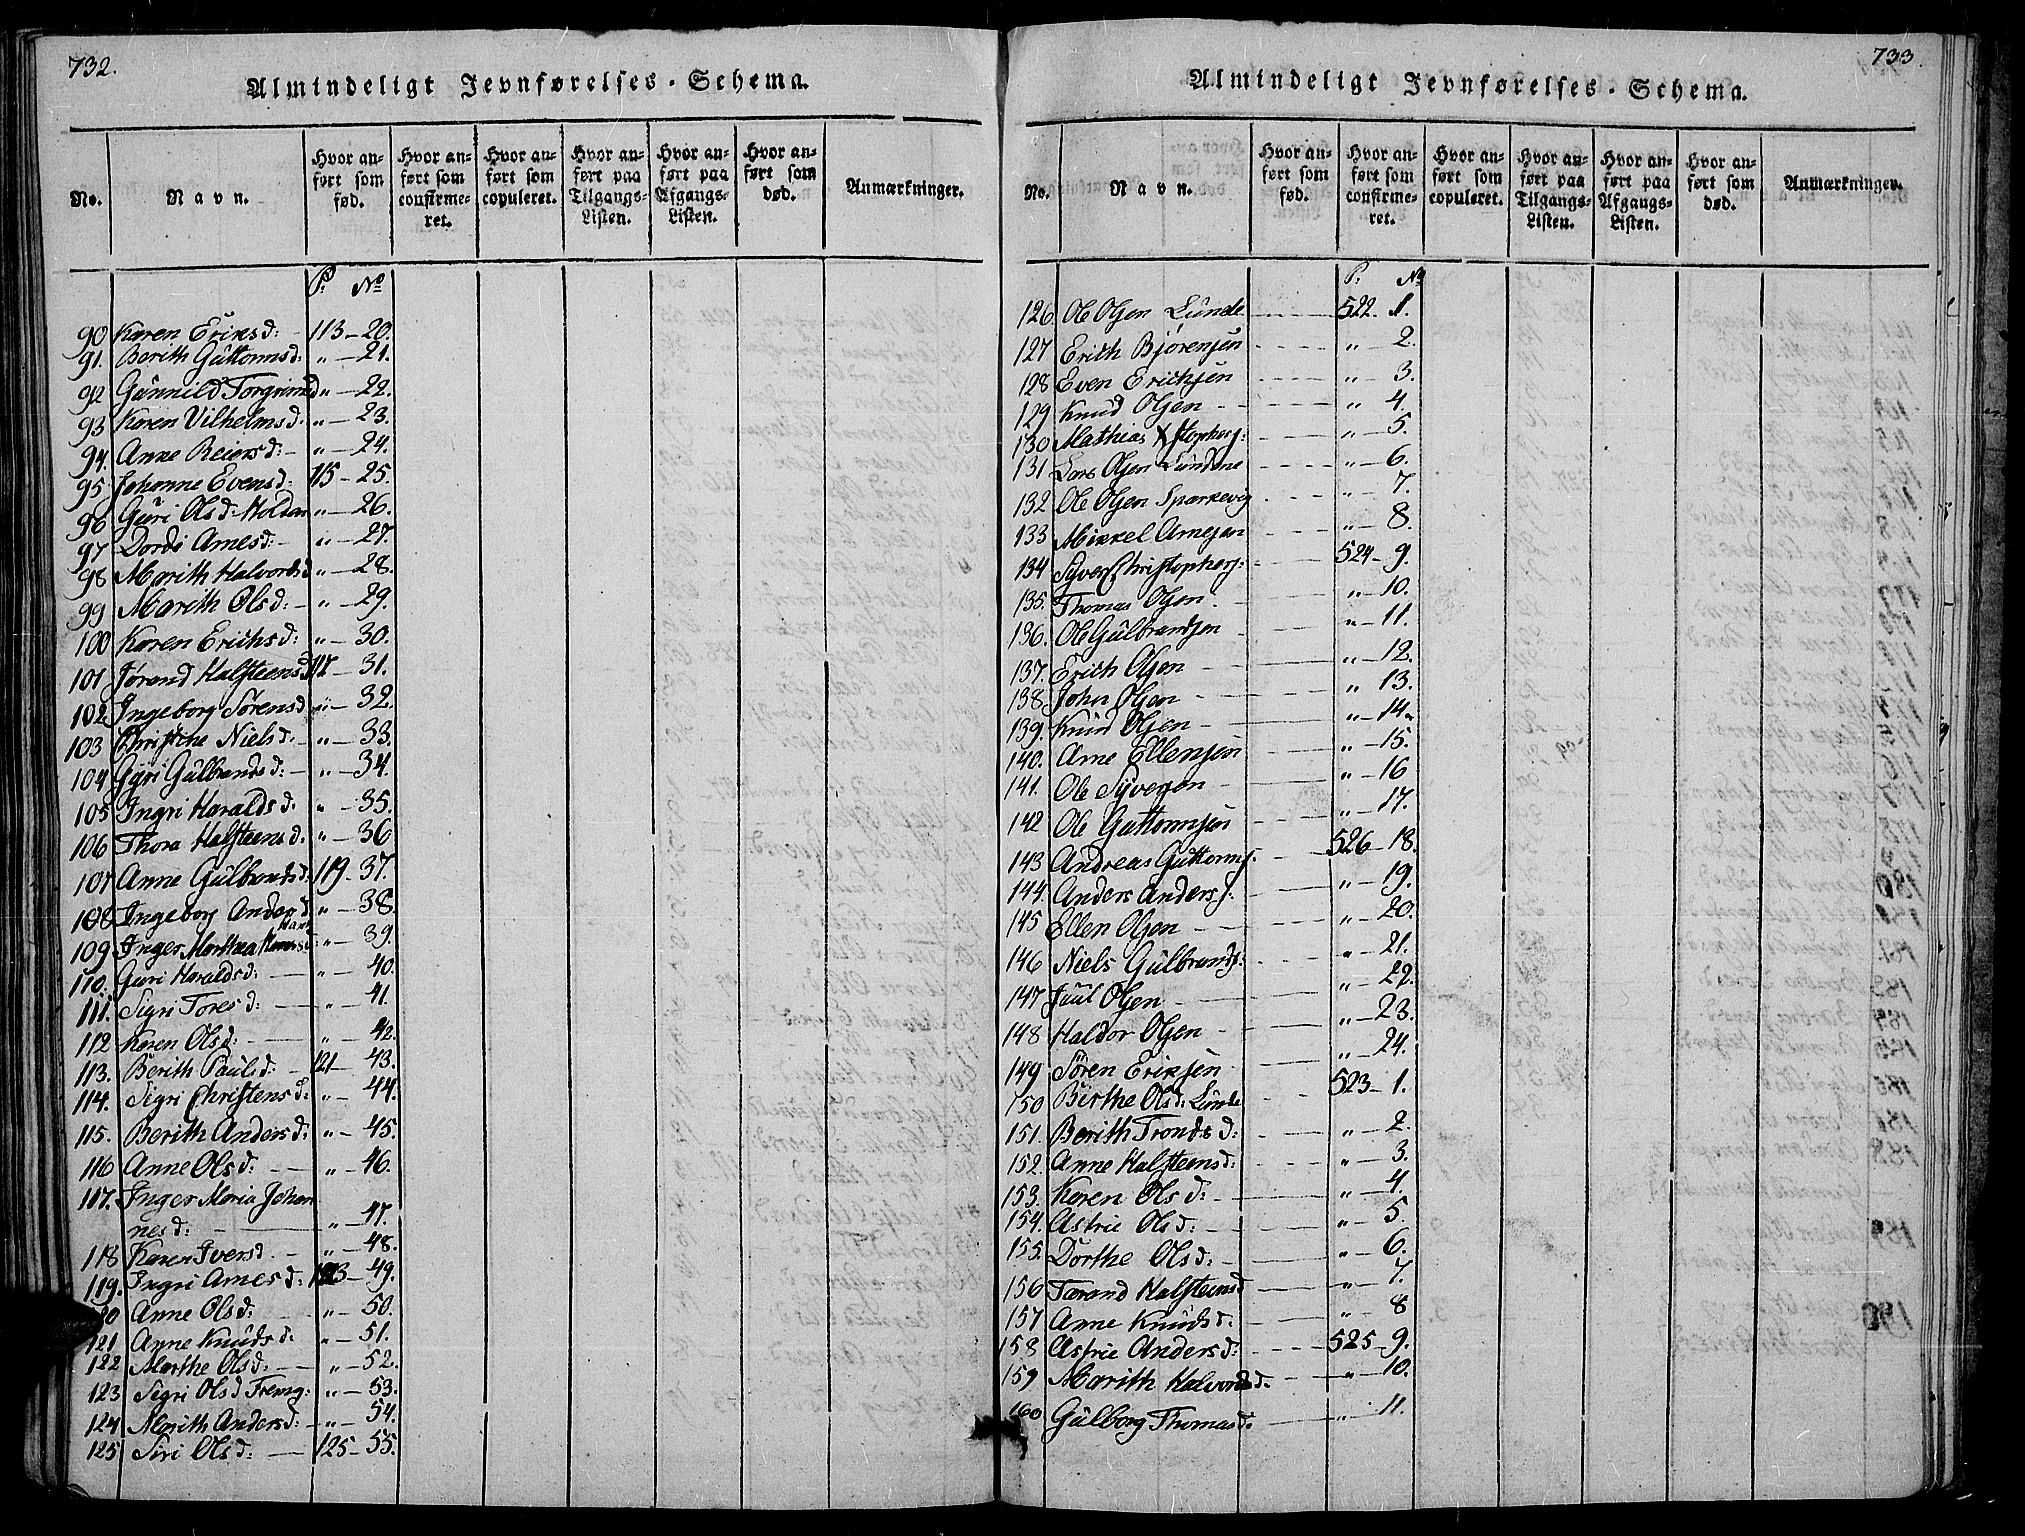 732.
Almindeligt Jevnførelses-Schema.
No.
Navn.
Hvor anført som fød.
Hvor anført som confirmeret.
Hvor anført som copuleret.
Hvor anført paa Tilgangs-Listen.
Hvor anført paa Afgangs-Listen.
Hvor anført som død.
Anmærkninger.
P. No
90 Karen Eriksd: 113 - 20.
91. Berith Guttormsd: " - 21.
92 Gunnild Torgrimsd " - 22.
93 Karen Vilhelmsd. " - 23.
94. Anne Reiersd: - " - 24.
95. Johanne Evensd: 115 - 25.
96 Guri Olsd: Moldan " - 26.
97 Dordi Arnesd: - " - 27.
98 Marith Halvorsd " - 28.
99 Marith Olsd: - " - 29.
100 Karen Erichsd: " - 30.
101 Jørand Halsteensd 117 - 31.
102 Ingeborg Sørensd " - 32.
103 Christine Nielsd. - " - 33.
104 Gyri Gulbrandsd: - " - 34.
105 Ingri Haraldsd. " - 35.
106 Thora Halsteensd: " - 36
107 Anne Gulbrandsd: 119 - 37.
108 Ingeborg Andersd. " - 38.
109 Inger Marthea " - 39.
110. Guri Haraldsd: - " - 40.
111. Sigri Toresd: - " - 41.
112 Karen Olsd: - " - 42.
113. Berith Paulsd: - 121 - 43.
114. Sigri Christensd: " - 44.
115. Berith Andersd: " - 45.
116 Anne Olsd: - " - 46.
117. Inger Maria Johan
nesd: - " - 47.
118 Karen Iversd. - " - 48.
119. Ingri Arnesd: 123 - 49.
120 Anne Olsd: " - 50.
121 Anne Knudsd. " - 51.
122 Marthe Olsd: - " - 52.
123 Sigri Olsd Fremg: " - 53.
124 Marith Andersd: - " - 54.
125 Siri Olsd: - 125 - 55.
733.
Almindeligt Jevnførelses-Schema.
No.
Navn.
Hvor anført som fød.
Hvor anført som confirmeret.
Hvor anført som copuleret.
Hvor anført paa Tilgangs-Listen.
Hvor anført paa Afgangs-Listen.
Hvor anført som død.
Anmærkninger.
P. No
126 Ole Olsen Lunde 522. 1.
127 Erith Bjørensen " - 2.
128 Even Erichsen " - 3.
129 Knud Olsen " - 4.
130 Mathias Xstophers: " - 5.
131 Lars Olsen Lundene " - 6.
132 Ole Olsen Sparkevig " - 7.
133 Mikkel Arnesen " - 8.
134 Syver Christophers: 524 - 9.
135. Thomas Olsen. " - 10.
136. Ole Gulbrandsen " - 11.
137. Erich Olsen " - 12.
138. John Olsen " - 13.
139. Knud Olsen " - 14.
140. Arne Ellensen " - 15.
141. Ole Syversen " - 16
142 Ole Guttormsen " - 17.
143 Andreas Guttorms. 526 - 18.
144. Anders Anders. " - 19.
145 Ellen Olsen " - 20.
146 Niels Gulbrands: " - 21.
147 Juul Olsen " - 22.
148 Haldor Olsen " - 23.
149 Sören Eriksen " - 24.
150 Birthe Olsd: Lunde 523 - 1.
151. Berith Trondsd: " - 2.
152. Anne Halsteensd: " - 3.
153. Karen Olsd: " - 4.
154. Astrie Olsd: " - 5.
155. Dorthe Olsd: " - 6.
156 Tarand Halsteensd " - 7.
157 Anne Knudsd: " - 8
158 Astrie Andersd: 525 - 9.
159 Marith Halvorsd. " - 10.
160 Gulborg Thomasd. " - 11.